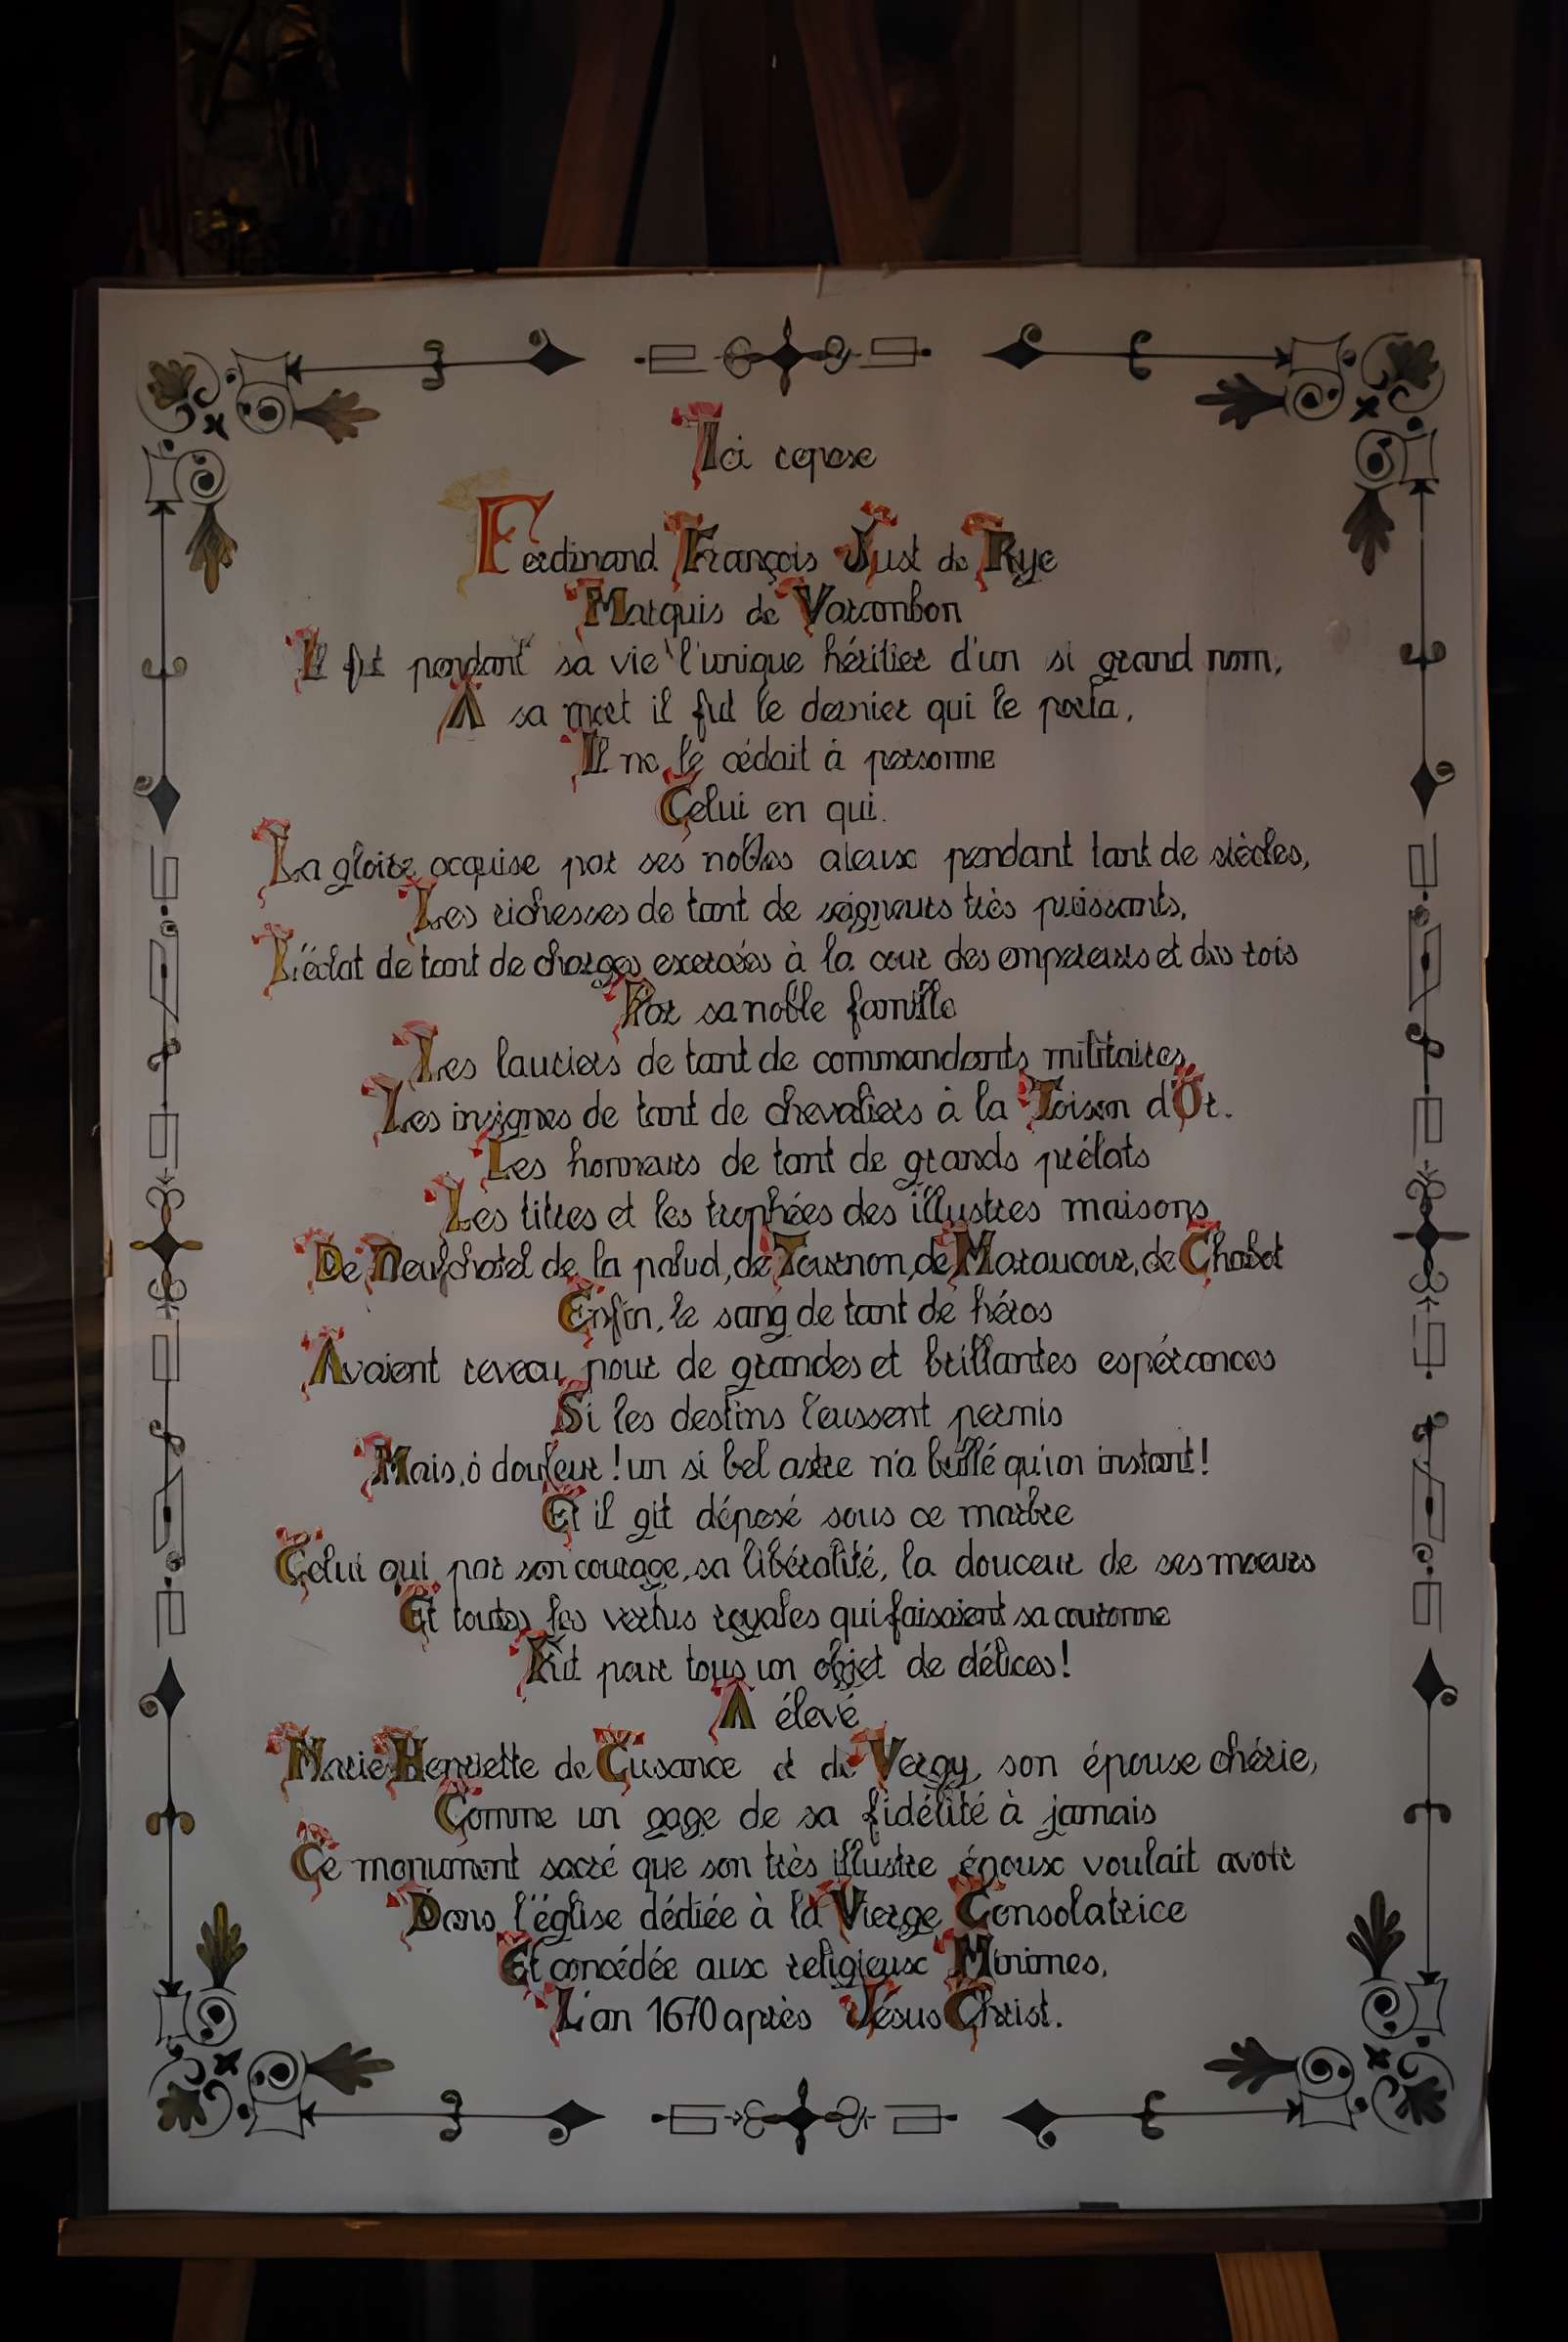 Ici repose
Ferdinand François Just de Rye
Marquis de Varambon
Il fut pendant sa vie l'unique héritier d'un si grand nom,
A sa mort il fut le dernier qui le porta,
Il ne le cédait à personne
Celui en qui.
La gloire acquise par ses nobles aïeux pendant tant de siècles,
Les richesses de tant de seigneurs très puissants,
L'éclat de tant de charges exercées à la cour des empereurs et des rois
Par sa noble famille
Les lauriers de tant de commandants militaires,
Les insignes de tant de chevaliers à la Toison d'Or.
Les honneurs de tant de grands prélats
Les titres et les trophées des illustres maisons
De Neufchatel de la palud, de Tournon, de Maraucour, de Chabot
Enfin, le sang de tant de héros
Avaient reveau pour de grandes et brillantes espérances
Si les destins l'eussent permis
Mais, ô douleur ! un si bel astre n'a brillé qu'un instant !
Et il git déposé sous ce marbre
Celui qui, par son courage, sa libéralité, la douceur de ses mœurs
Et toutes les vertus royales qui faisaient sa couronne
Fut pour tous un objet de délices !
A élevé
Marie Henriette de Cusance et de Vergy, son épouse chérie,
Comme un gage de sa fidélité à jamais
Ce monument sacré que son très illustre époux voulait avoir
Dans l'église dédiée à la Vierge Consolatrice
Et concédée aux religieux Minimes,
L'an 1670 après Jésus Christ.